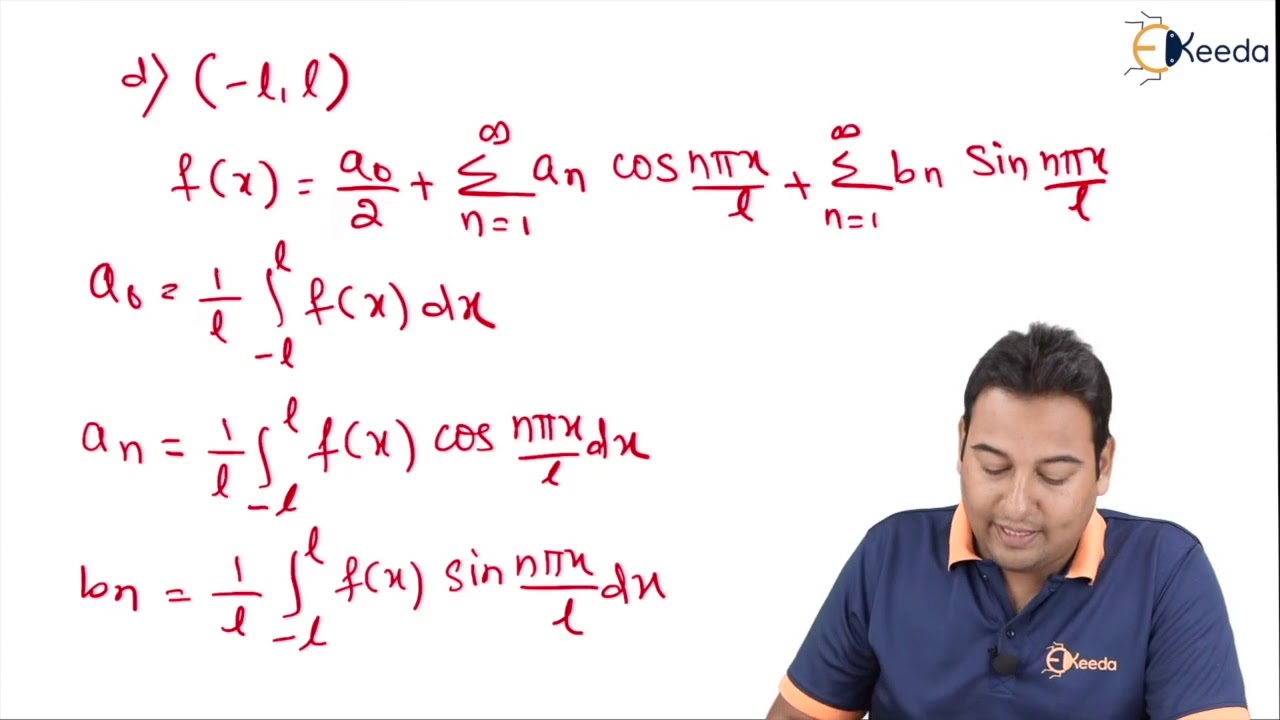 d) (-l, l)
EKeeda
f(x) = a₀/2 + ∞∑n=1 aₙ cos nπx/l + ∞∑n=1 bₙ sin nπx/l
a₀ = 1/l ∫₋ₗˡ f(x) dx
aₙ = 1/l ∫₋ₗˡ f(x) cos nπx/l dx
bₙ = 1/l ∫₋ₗˡ f(x) sin nπx/l dx
EKeeda